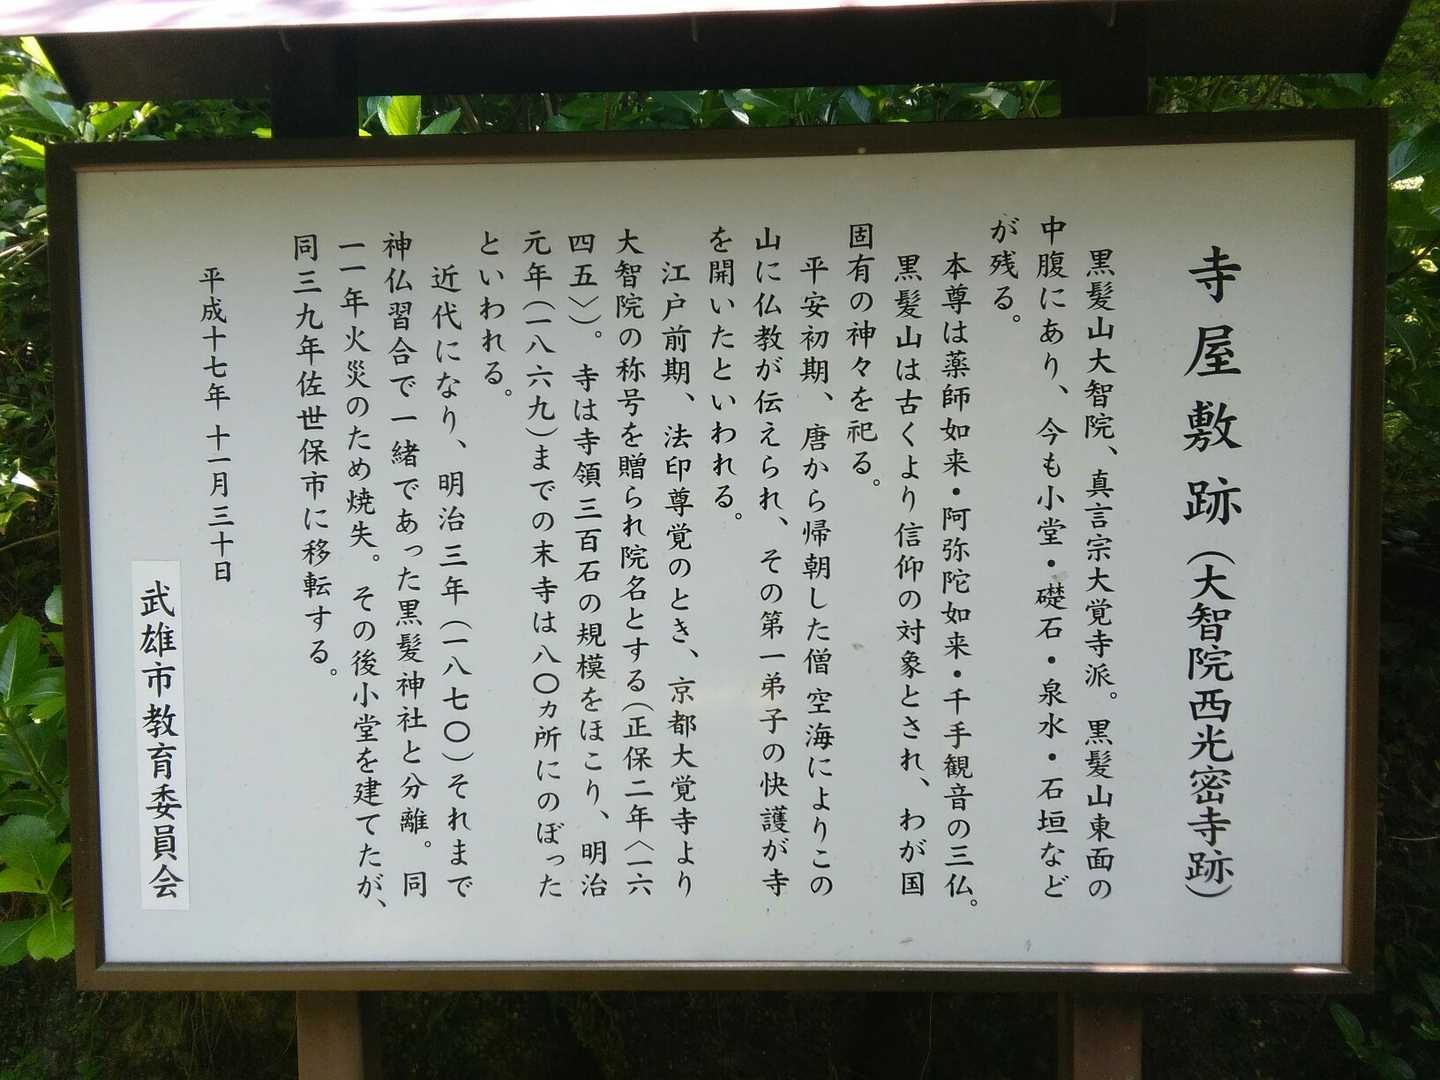 寺屋敷跡(大智院西光密寺跡)
黒髪山大智院、真言宗大覚寺派。黒髪山東面の
中腹にあり、今も小堂・礎石・泉水・石垣など
が残る。
本尊は薬師如来・阿弥陀如来・千手観音の三仏。
黒髪山は古くより信仰の対象とされ、わが国
固有の神々を祀る。
平安初期、唐から帰朝した僧空海によりこの
山に仏教が伝えられ、その第一弟子の快護が寺
を開いたといわれる。
江戸前期、法印尊覚のとき、京都大覚寺より
大智院の称号を贈られ院名とする(正保二年〈一六
四五〉)。寺は寺領三百石の規模をほこり、明治
元年(一八六九)までの末寺は八〇ヵ所にのぼった
といわれる。
近代になり、明治三年(一八七〇)それまで
神仏習合で一緒であった黒髪神社と分離。同
一一年火災のため焼失。その後小堂を建てたが、
同三九年佐世保市に移転する。
平成十七年十一月三十日
武雄市教育委員会